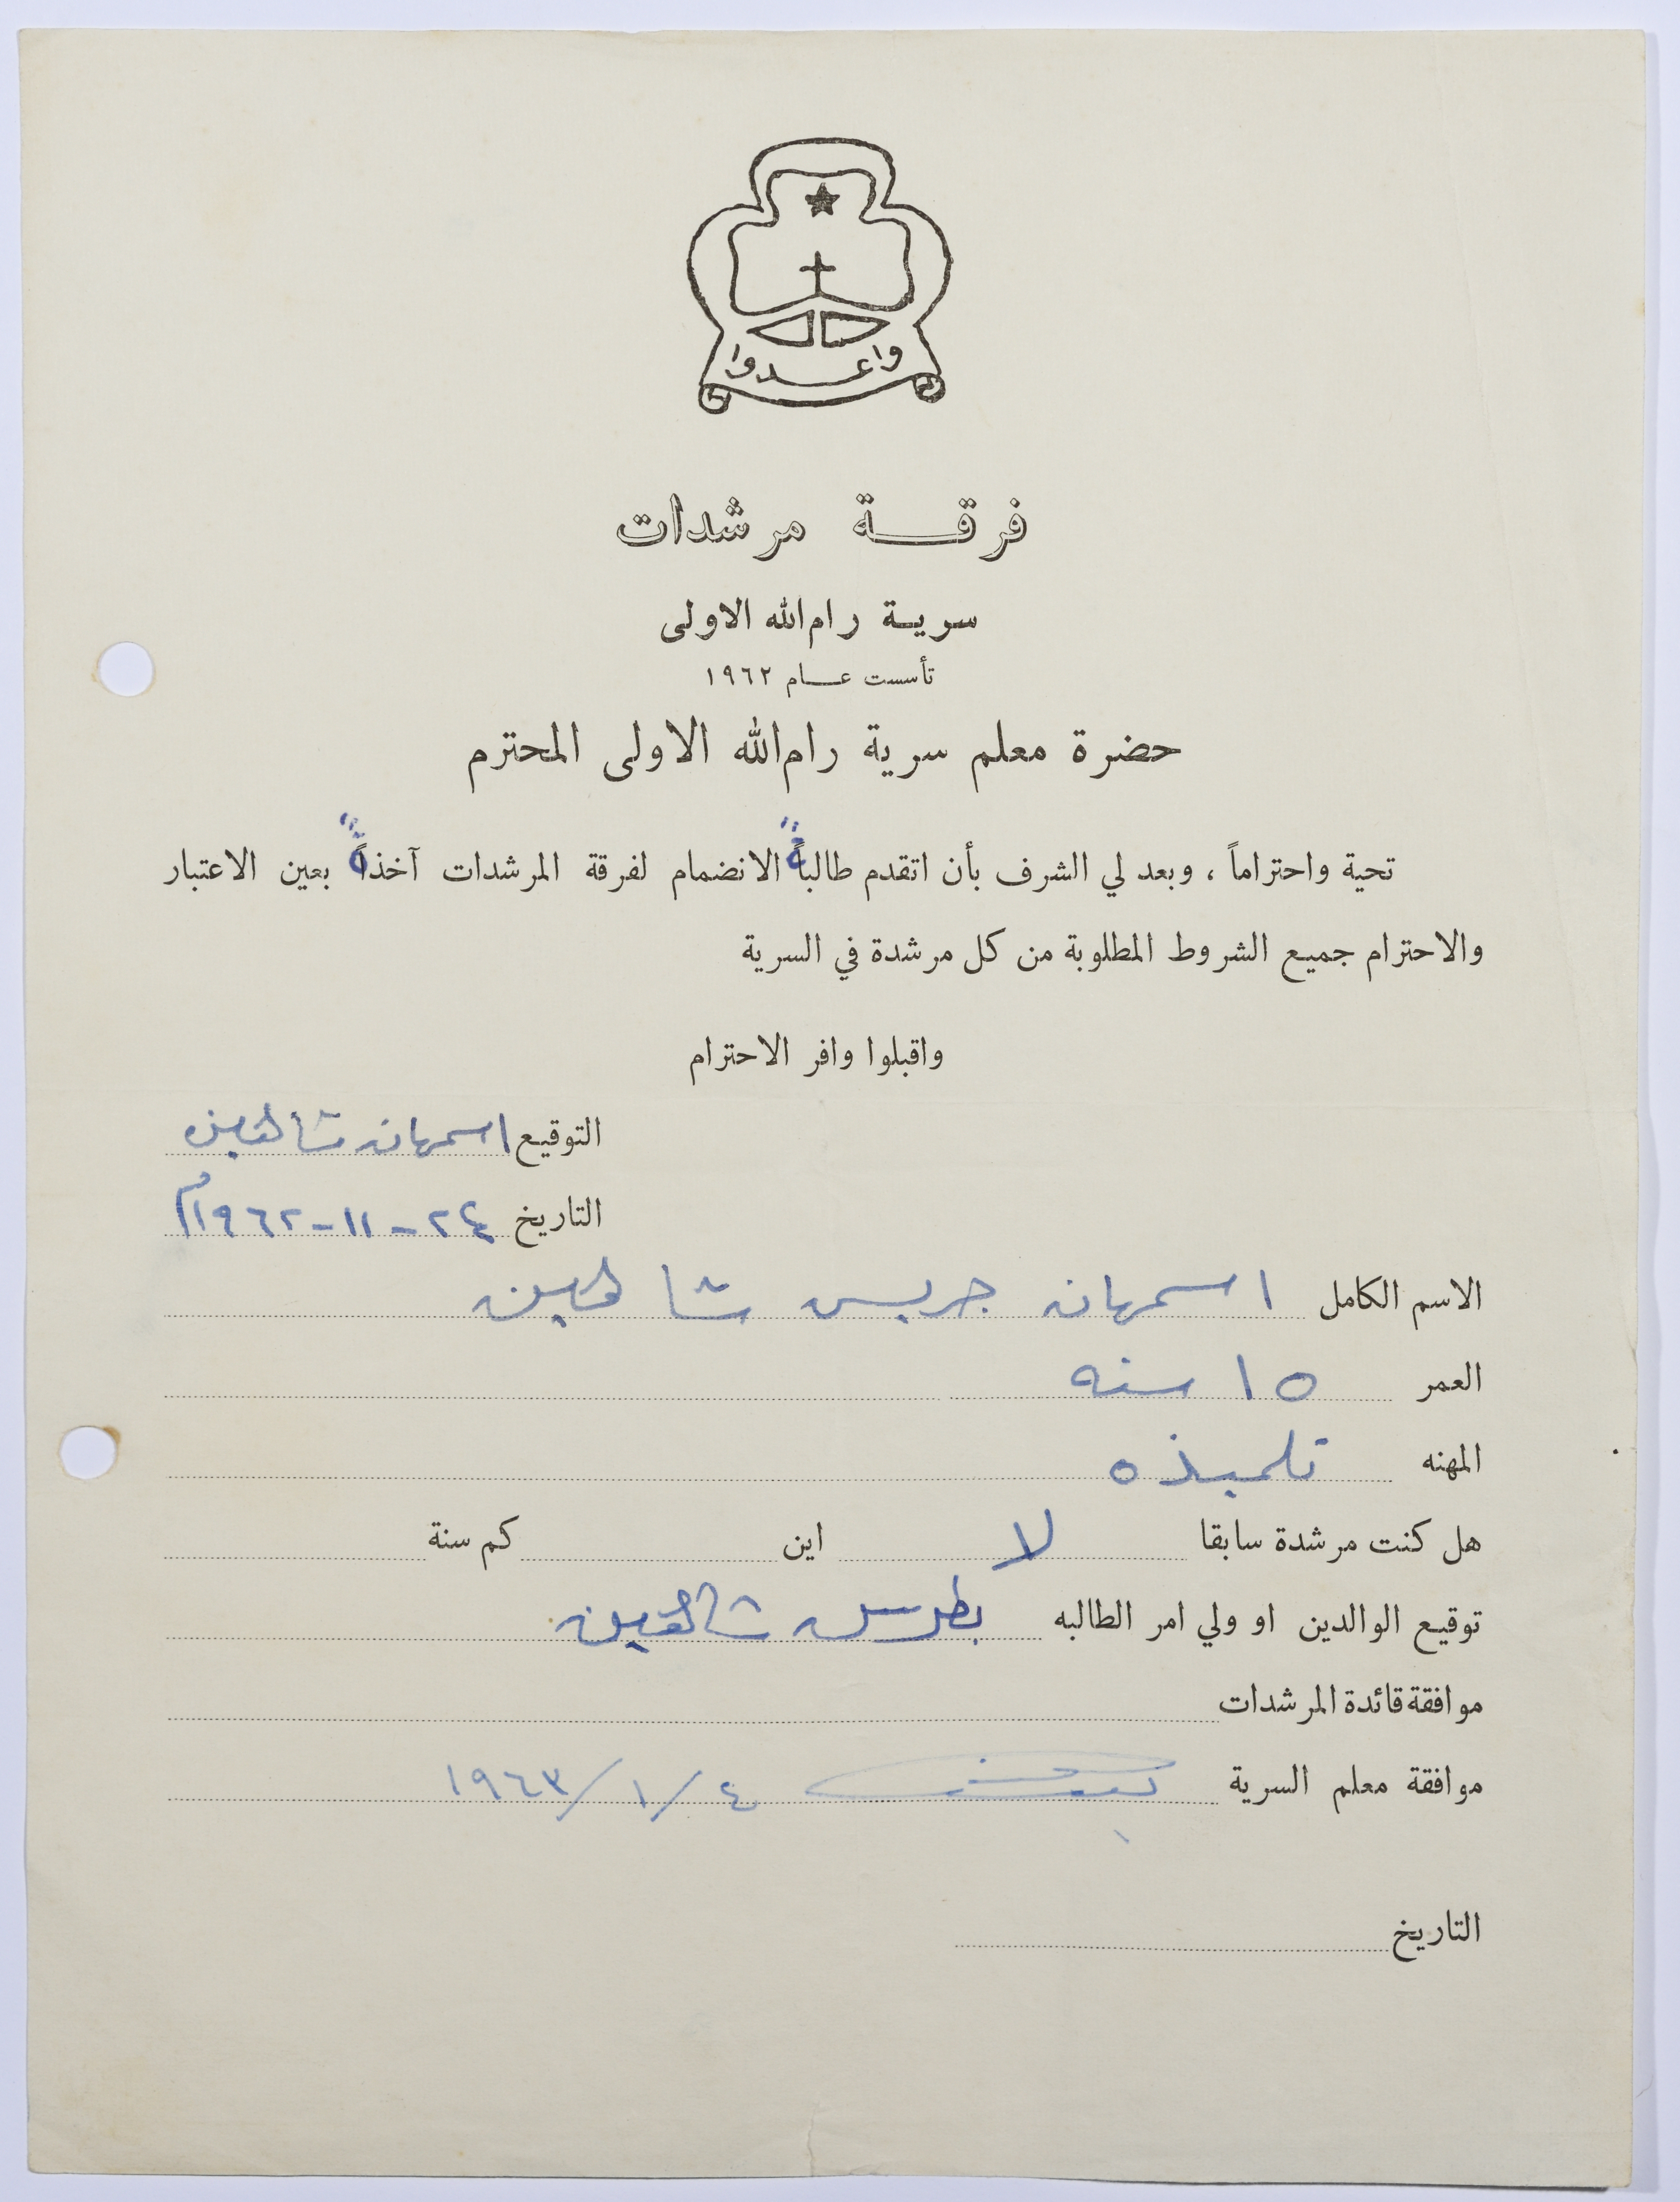 واعدوا
فرقة مرشدات
سرية رام الله الاولى
تأسست عام ١٩٦٢
حضرة معلم سرية رام الله الاولى المحترم
تحية واحتراماً ، وبعد لي الشرف بأن اتقدم طالبةً الانضمام لفرقة المرشدات آخذةً بعين الاعتبار
والاحترام جميع الشروط المطلوبة من كل مرشدة في السرية
واقبلوا وافر الاحترام
التوقيع اسمهان شاهين
التاريخ ٢٤-١١-١٩٦٢م
الاسم الكامل اسمهان جريس شاهين
العمر ١٥ سنه
المهنه تلميذه
هل كنت مرشدة سابقا لا اين كم سنة
توقيع الوالدين او ولي امر الطالبه بطرس شاهين
موافقة قائدة المرشدات
موافقة معلم السرية ٤/١/١٩٦٣
التاريخ